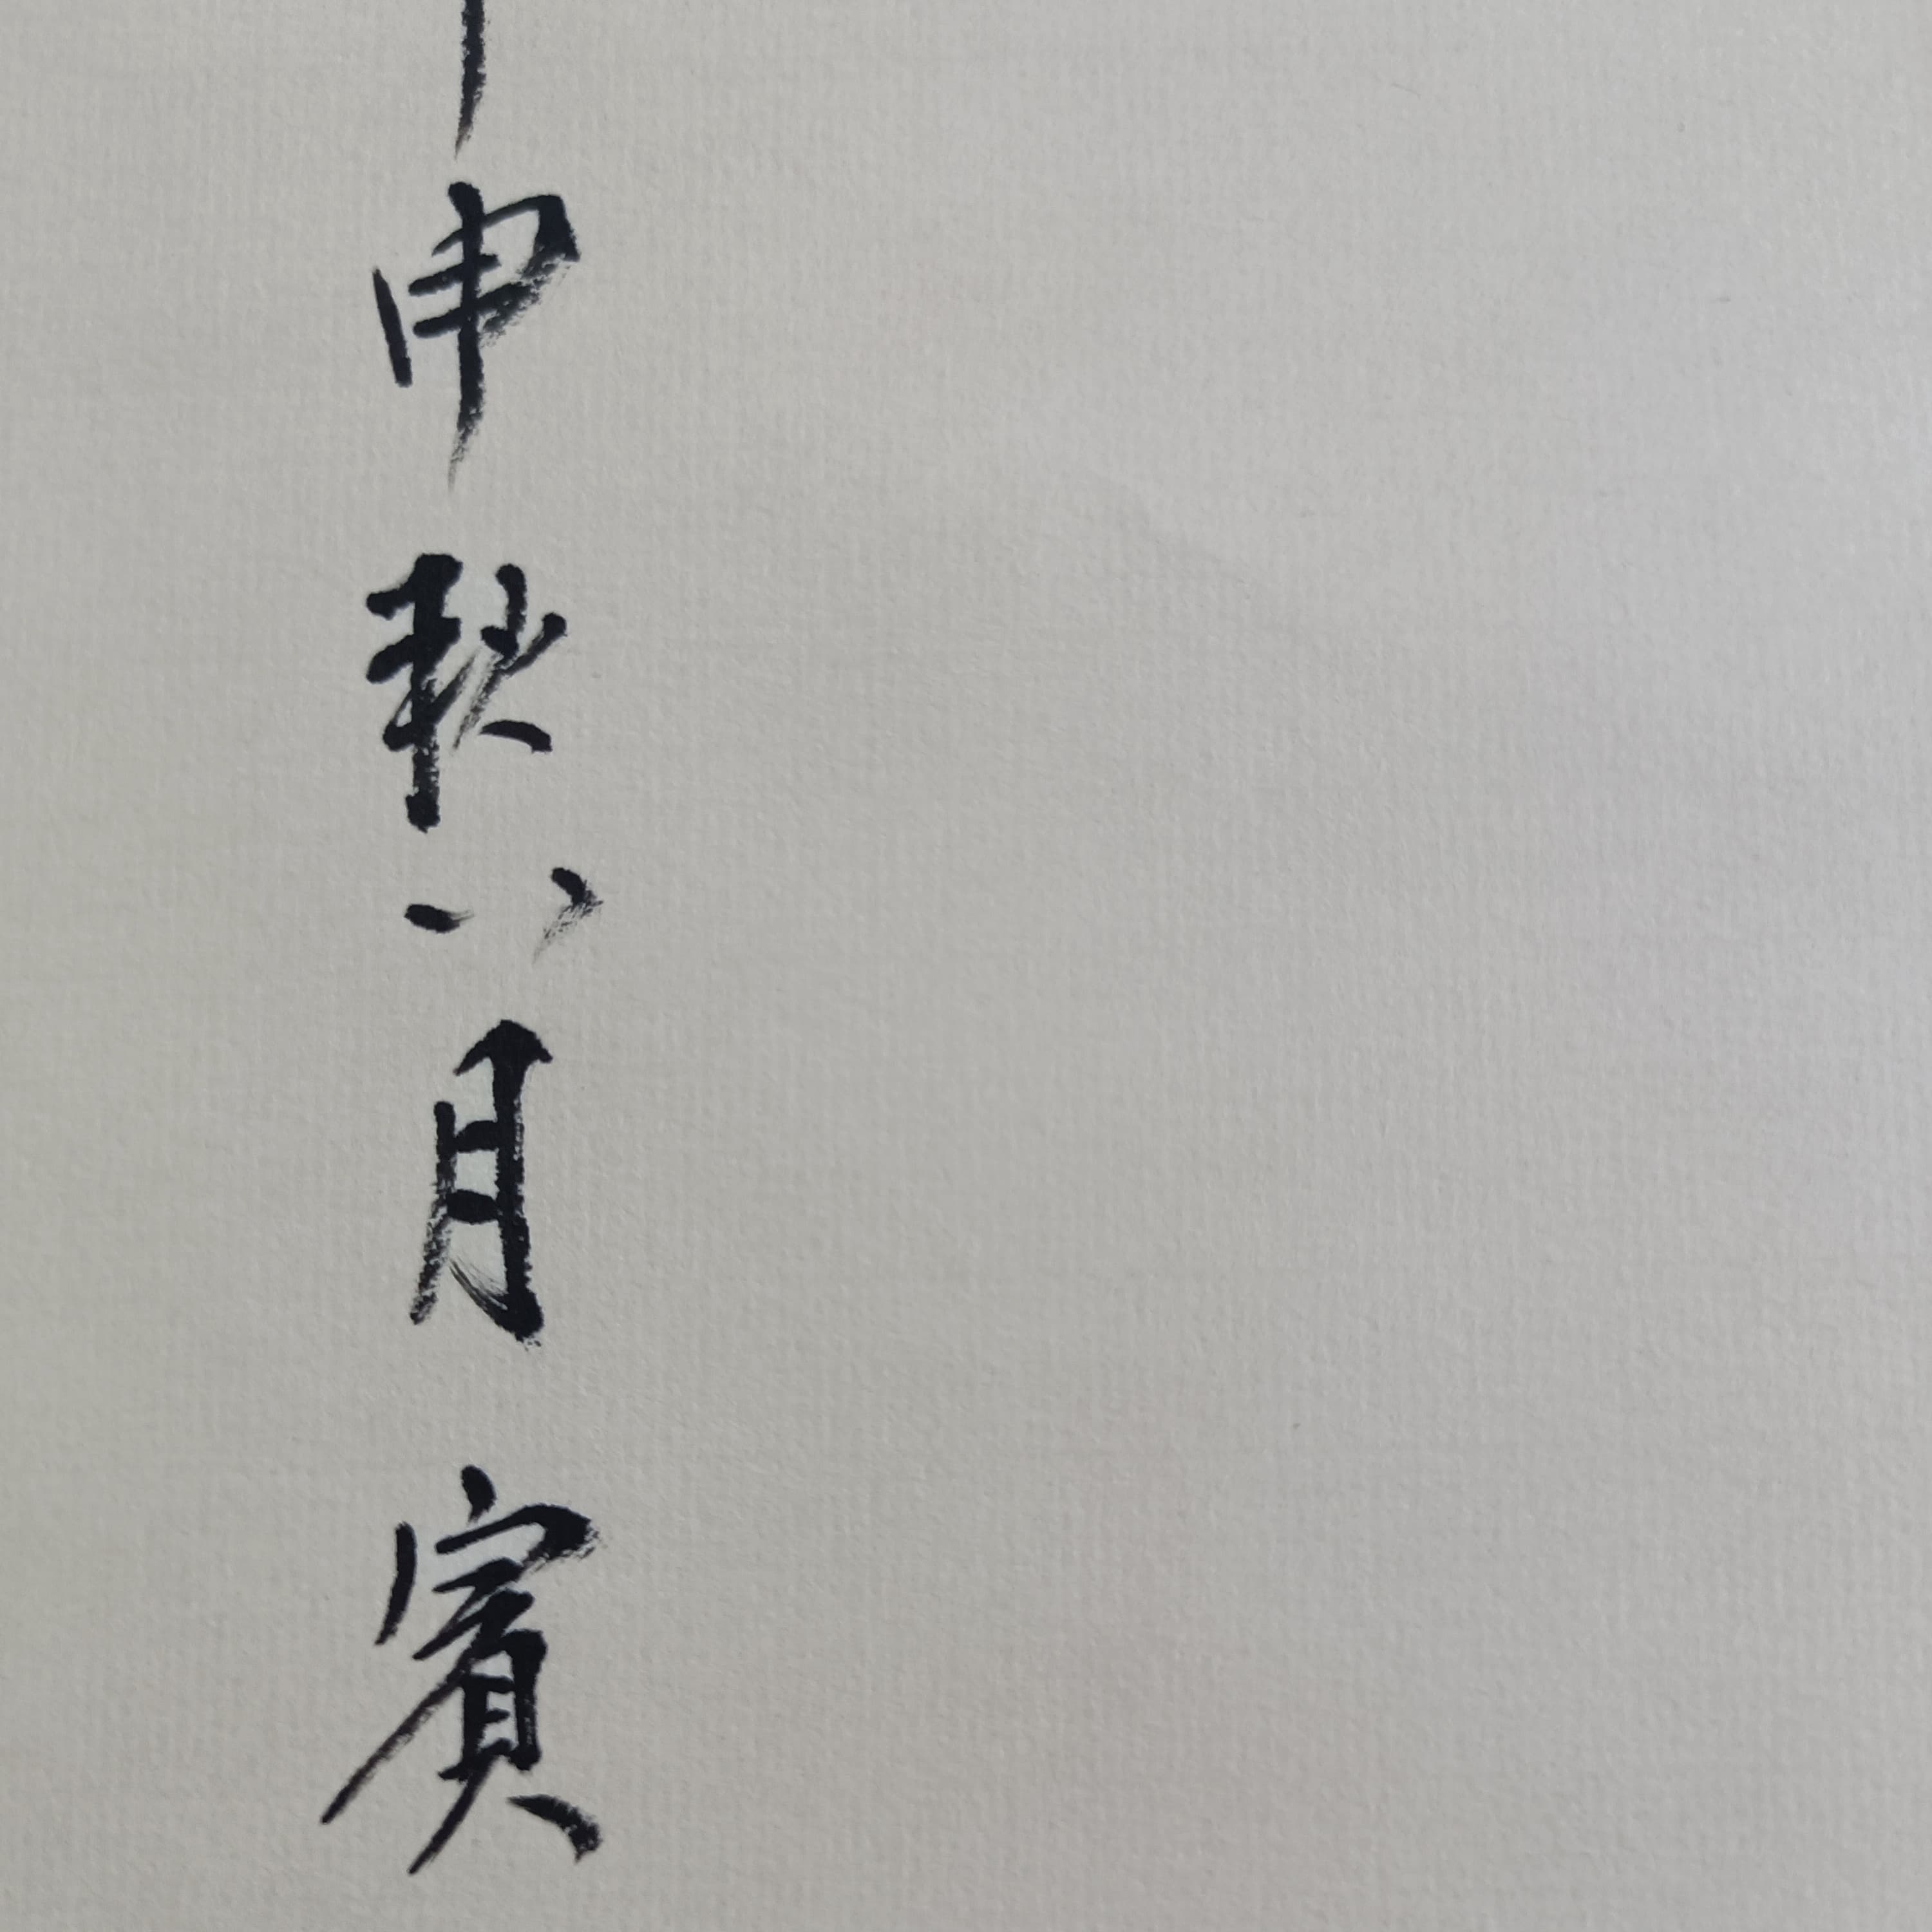 申秋八月賓